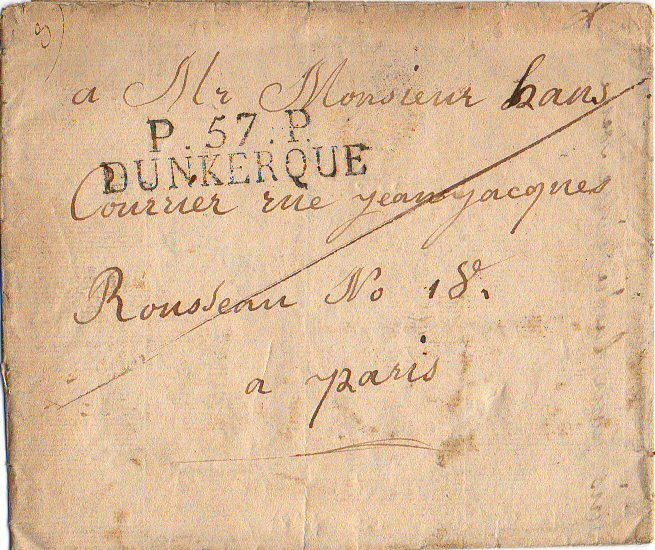 a Mr Monsieur hans
P. 57. P.
DUNKERQUE
Courrier rue jean jacques
Rousseau No 18.
a paris